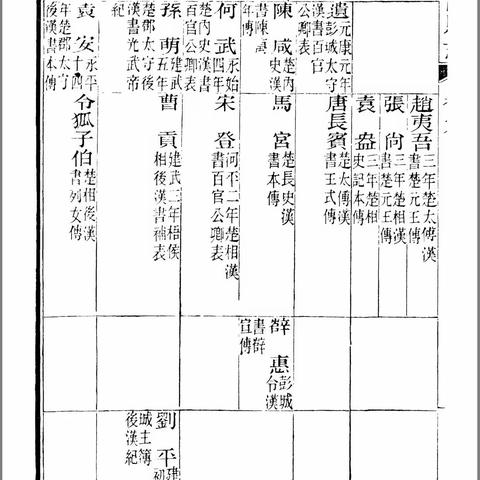 趙夷吾 三年楚太傅漢書楚元王傳
張尚 三年楚相漢書楚元王傳
袁盎 三年楚相史記本傳
遺 元康元年彭城太守漢書百官公卿表
唐長賓 楚太傅漢書王式傳
陳咸 楚內史漢書陳萬年傳
馬宮 楚長史漢書本傳
薛惠 彭城令漢書薛宣傳
何武 永始四年楚內史漢書百官公卿表
宋登 河平二年楚相漢書百官公卿表
孫萌 建武五年楚郡太守後漢書光武帝紀
曹貢 建武三年梧侯相後漢書補表
劉平 建初城主簿後漢紀
袁安 永平十四年楚郡太守後漢書本傳
令狐子伯 楚相後漢書列女傳